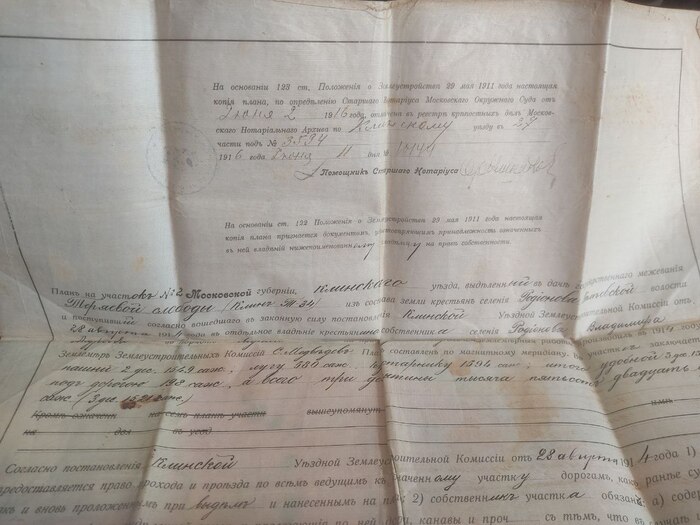 На основаніи 123 ст. Положенія о Землеустройствѣ 29 мая 1911 года настоящая
копія плана, по опредѣленію Старшаго Нотаріуса Московскаго Окружнаго Суда отъ
Іюня 2 1916 года, отмѣчена въ реестрѣ крѣпостныхъ дѣлъ Москов-
скаго Нотаріальнаго Архива по Клинскому уѣзду въ 27
части подъ № 3594
1916 года Іюня 11 дня №
Помощникъ Старшаго Нотаріуса
На основаніи ст. 122 Положенія о Землеустройствѣ 29 мая 1911 года настоящая
копія плана признается документомъ, удостовѣряющимъ принадлежность означенныхъ
въ ней владѣній нижепоименованному владѣльцу на правѣ собственности.
Планъ на участокъ №2 Московской губерніи, Клинскаго уѣзда, выдѣленный въ дачѣ государственнаго межеванія
Теряевой слободы (Клинъ 34) изъ состава земли крестьянъ селенія Родіонова волости
и поступившій согласно вошедшаго въ законную силу постановленія Клинской Уѣздной Землеустроительной Комиссіи отъ
28 августа 191 года въ отдѣльное владѣніе крестьянина собственника селенія Родіонова Владиміра
Землемѣръ Землеустроительныхъ Комиссій С. Медвѣдевъ. Планъ составленъ по магнитному меридіану. участкѣ заключается
пашни 2 дес. 1549 саж., лугу 585 саж., кустарнику 1594 саж., итого удобной 3 дес.
подъ дорогою 193 саж., а всего три десятины тысяча пятьсотъ двадцать
саж. (3 дес. 1521 саж.)
Кромѣ означен на семъ планѣ участк вышеупомянут имъ
на дол въ усад
Согласно постановленія Клинской Уѣздной Землеустроительной Комиссіи отъ 28 августа 1914 года 1)
предоставляется право прохода и проѣзда по всѣмъ ведущимъ къ означенному участку дорогамъ, какъ ранѣе су
такъ и вновь проложеннымъ при выдѣлѣ и нанесеннымъ на планъ 2) собственникъ участка обязанъ: а) содер
по ней канавы и проч с тѣмъ, что въ